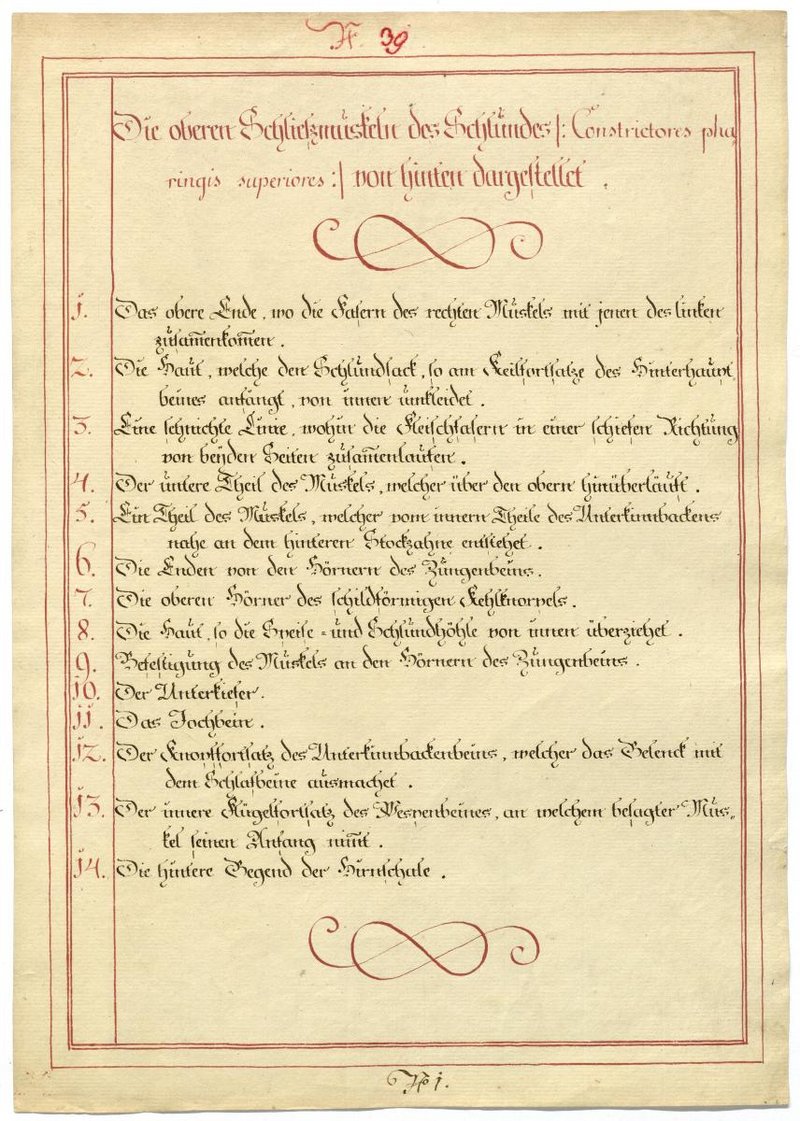 N. 39
Die oberen Schließmuskeln des Schlundes /: Constrictores pha,
ringis superiores :/ von hinten dargestellet .
1. Das obere Ende, wo die Fasern des rechten Muskels mit jenen des linken
zusam̅enkom̅en .
2. Die Haut, welche den Schlundsack, so am Keilfortsatze des Hinterhaupt,
beines anfängt, von innen umkleidet .
3. Eine sehnichte Linie, wohin die Fleischfasern in einer schiefen Richtung
von beÿden Seiten zusam̅enlaufen .
4. Der untere Theil des Muskels, welcher über den obern hinüberläuft .
5. Ein Theil des Muskels, welcher vom innern Theile des Unterkinnbackens
nahe an dem hinteren Stockzahne entstehet .
6. Die Enden von den Hörnern des Zungenbeins .
7. Die oberen Hörner des schildförmigen Kehlknorpels .
8. Die Haut, so die Speise - und Schlundhöhle von innen überziehet .
9. Befestigung des Muskels an den Hörnern des Zungenbeins .
10. Der Unterkiefer .
11. Das Jochbein .
12. Der Knopffortsatz des Unterkinnbackenbeins, welcher das Gelenck mit
dem Schlafbeine ausmachet .
13. Der innere Flügelfortsatz des Wespenbeines, an welchem besagter Mus-
kel seinen Anfang nim̅t .
14. Die hintere Gegend der Hirnschale .
No 1.